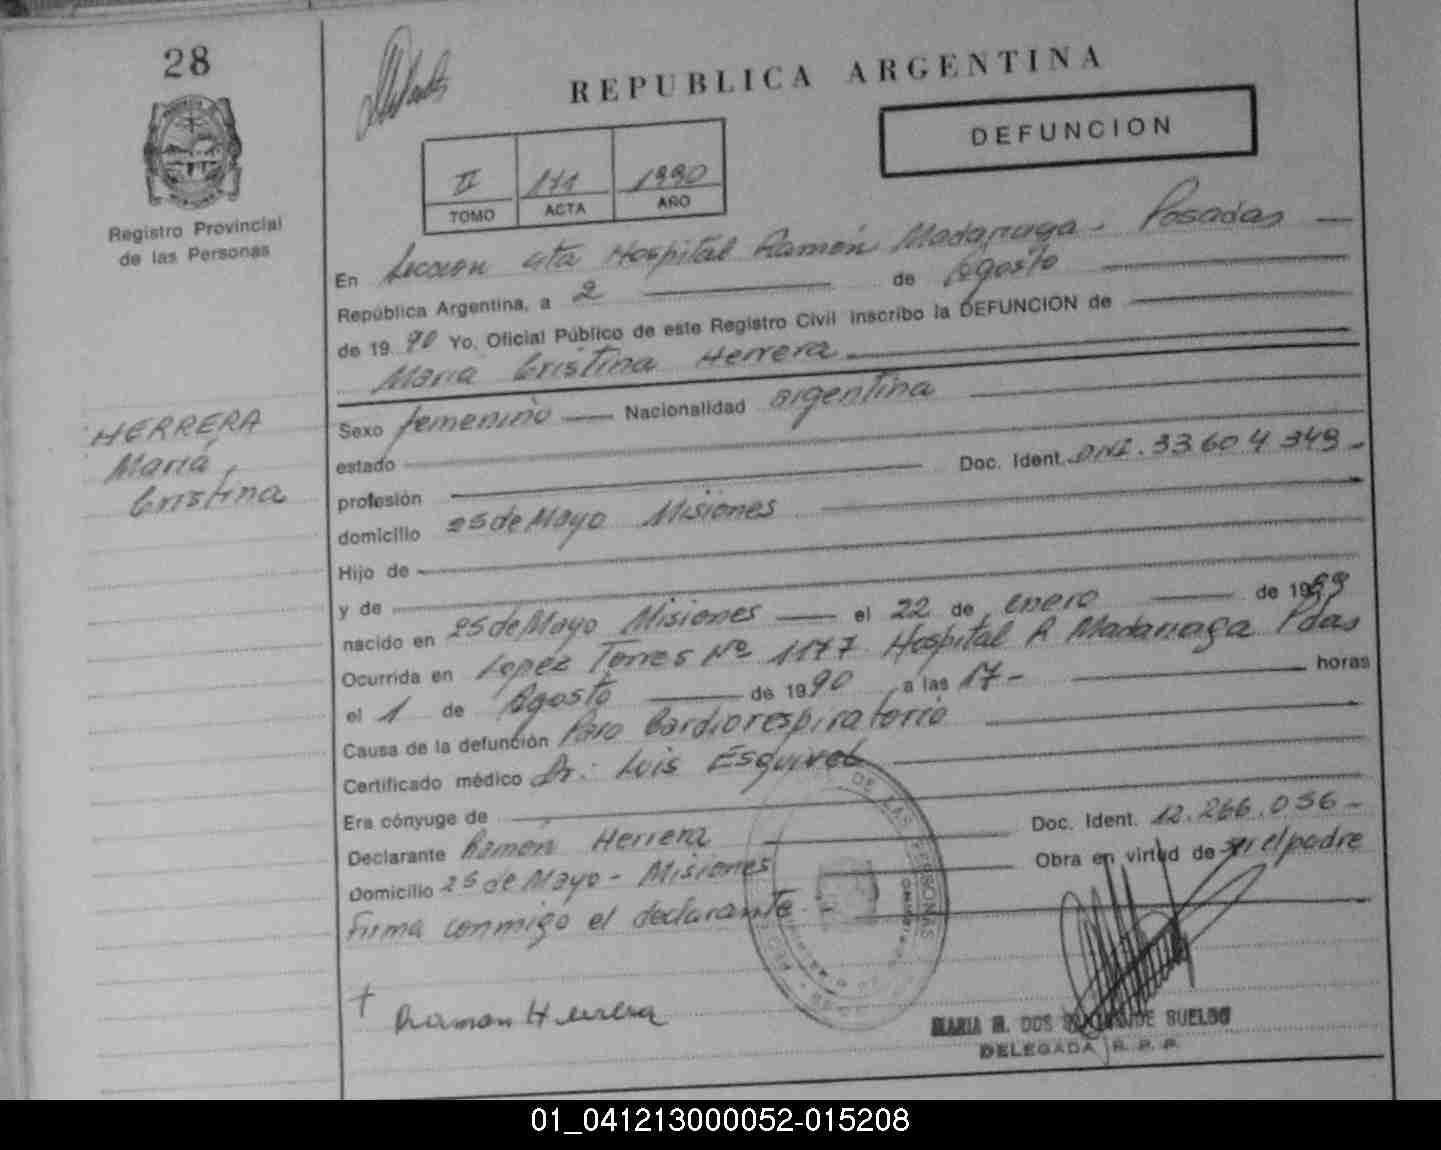 28
Registro Provincial
de las Personas
HERRERA
María
Cristina
REPUBLICA ARGENTINA
DEFUNCION
II 111 1990
TOMO ACTA AÑO
En Seccion 4ta Hospital Ramón Madariaga - Posadas
República Argentina, a 2 de Agosto
de 1990 Yo, Oficial Público de este Registro Civil inscribo la DEFUNCION de
María Cristina Herrera
Sexo femenino Nacionalidad argentina
estado
profesión Doc. Ident. DNI. 33.604.349-
domicilio 25 de Mayo Misiones
Hijo de
y de
nacido en 25 de Mayo Misiones el 22 de enero de 19
Ocurrida en Lopéz Torres Nº 1177 Hospital R Madariaga Pdas
el 1 de Agosto de 1990 a las 17- horas
Causa de la defunción Paro Cardiorespiratorio
Certificado médico Dr. Luis Esquivel
Era cónyuge de
Declarante Ramón Herrera Doc. Ident. 12.266.056-
Domicilio 25 de Mayo - Misiones Obra en virtud de ser el padre
Firma conmigo el declarante.
DE LAS PERSONAS
Ramon Herrera
MARIA R. DOS DE BUELDO
DELEGADA R. P. P.
01_041213000052-015208